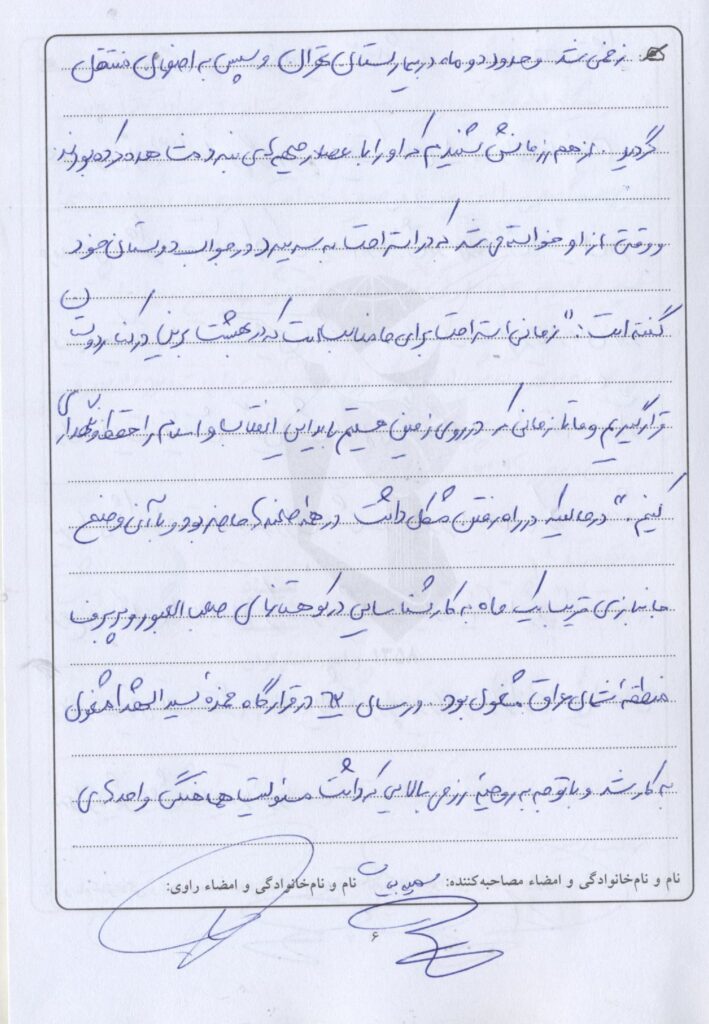 زخمی شد و حدود دو ماه در بیمارستان تهران و سپس به اصفهان منتقل
گردید. از هم رزمانش شنیدیم که او را با عصا در صحنه‌های نبرد مشاهده کرده بودند
و وقتی از او خواسته می‌شد که در استراحت به سر ببرد در جواب دوستان خود
گفته است: "زمانی استراحت برای ما مناسب است که در بهشت برین در کنار دوستان
قرار گیریم و ما تا زمانی که در روی زمین هستیم باید این انقلاب و اسلام را حفظ و نگهداری
کنیم." در حالیکه در راه رفتن مشکل داشت در همه صحنه‌ها حاضر بود و با آن وضع
جانبازی قریب یک ماه به کار شناسایی در کوهستانهای صعب العبور و پر برف
منطقهٔ شمال عراق مشغول بود. در سال ۶۴ در قرارگاه حمزهٔ سیدالشهدا مشغول
به کار شد و با توجه به روحیهٔ رزمی بالایی که داشت مسئولیت هماهنگی واحدهای
نام و نام‌خانوادگی و امضاء مصاحبه‌کننده: نام و نام‌خانوادگی و امضاء راوی:
۶